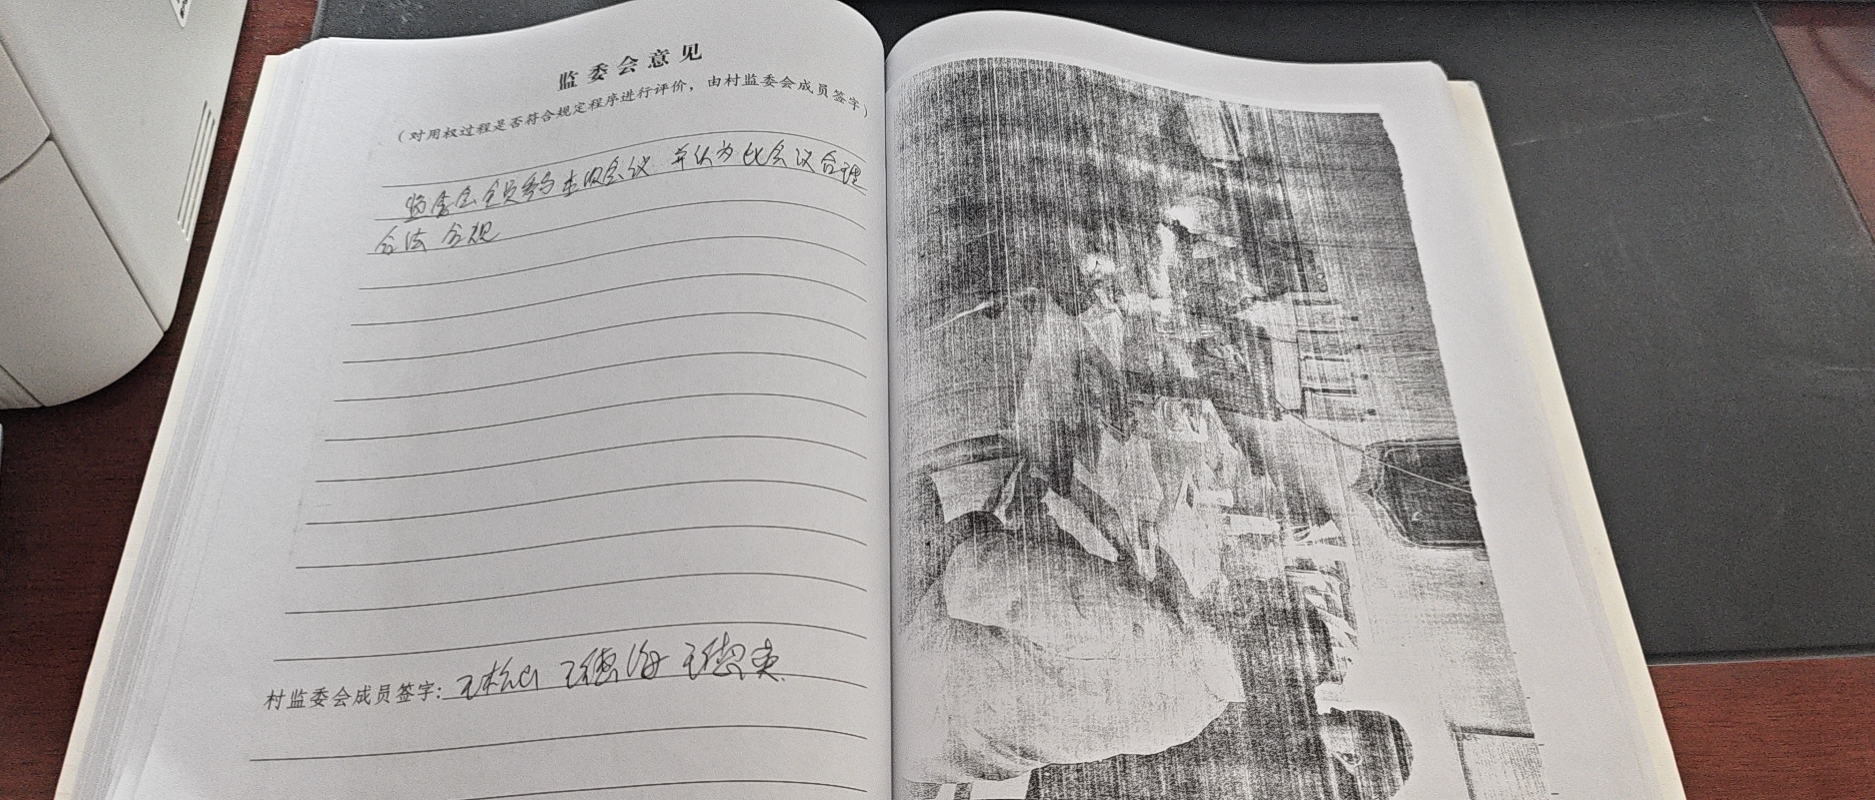 监委会意见
（对用权过程是否符合规定程序进行评价，由村监委会成员签字）
监委会全员参与本次会议 并认为此会议合理
合法 合规
村监委会成员签字：王松山 王德海 王德